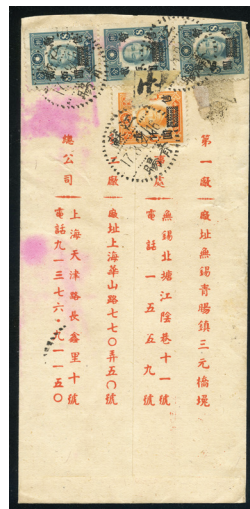 第一廠 廠址無錫青暘鎮三元橋堍
無錫北塘江陰巷十一號
電話一五五九號
二廠 廠址上海華山路七七〇弄五〇號
總公司 上海天津路長鑫里十號
電話九一三七六·九一一五〇